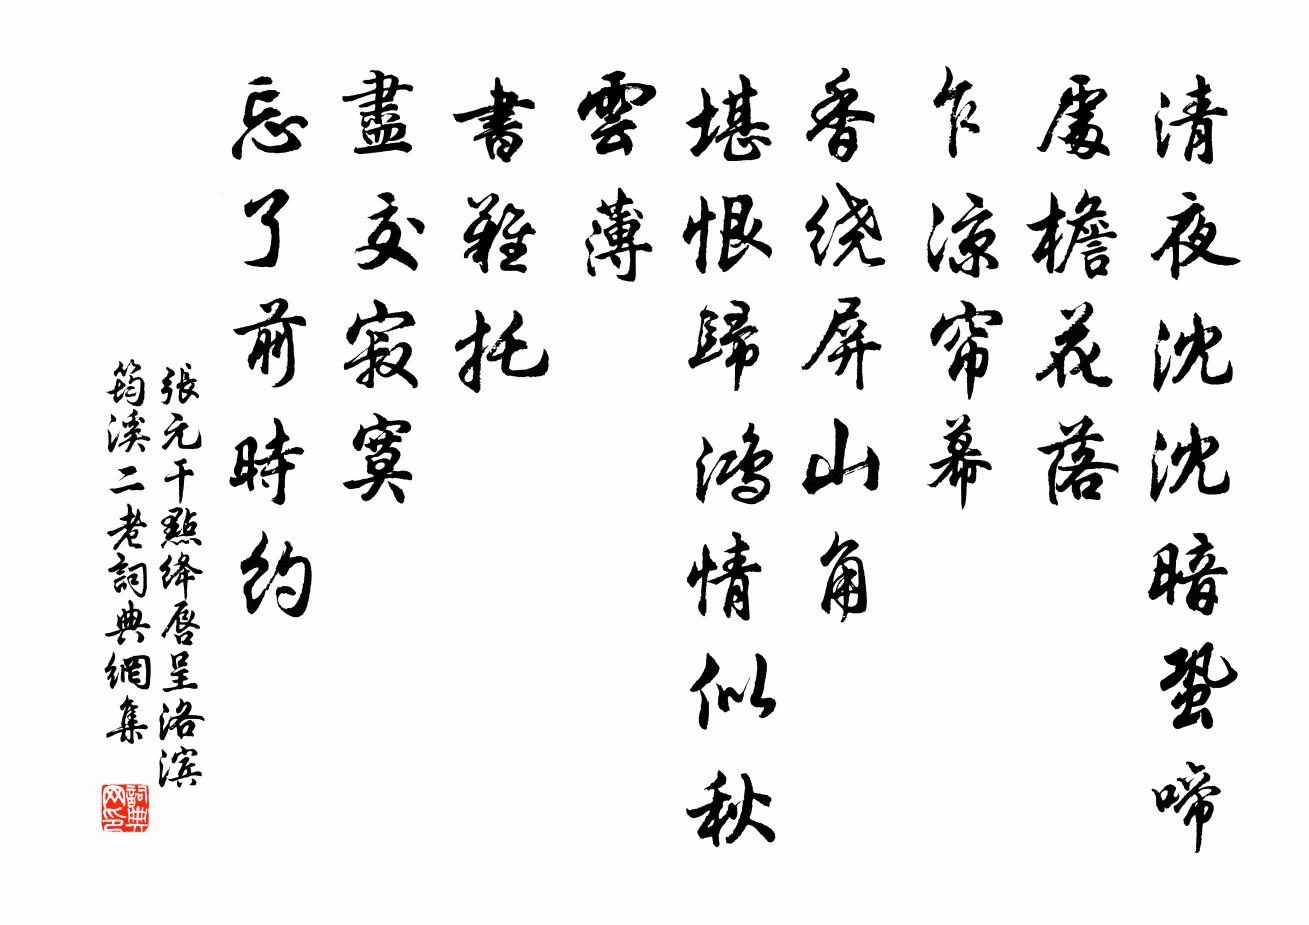 清夜沈沈暗蛩啼
處檐花落
乍涼帘幕
香绕屏山角
堪恨歸鴻情似秋
雲薄
書難托
盡交寂寞
忘了前時約
張元干點絳唇呈洛滨
筠溪二老詞典網集
詞典
网印